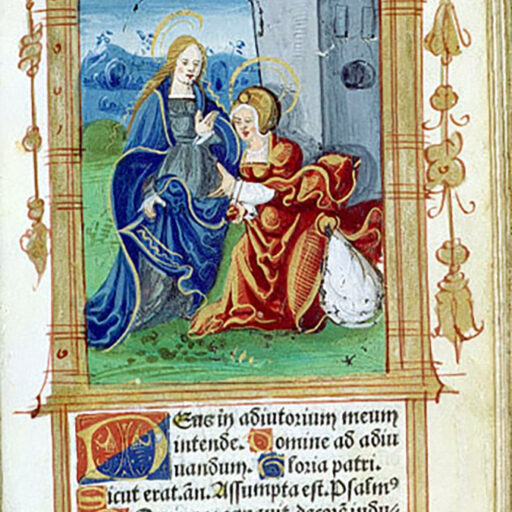 Deus in adiutorium meum
intende. Domine ad adiu
uandum. Gloria patri.
Sicut erat. an. Assumpta est. Psalmꝰ